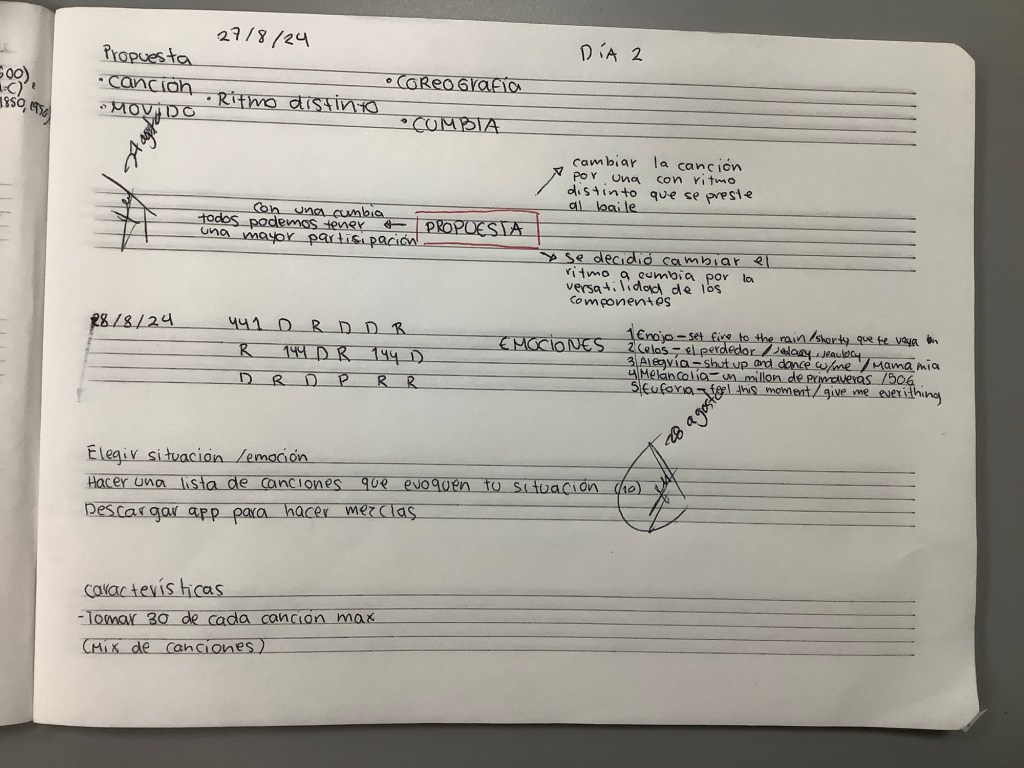 27/8/24
DÍA 2
Propuesta
• Canción
• COReografía
• Ritmo distinto
• MOVIDO
• CUMBIA
27 agosto
cambiar la canción
por una con ritmo
distinto que se preste
al baile
Con una cumbia
todos podemos tener
una mayor partisipación
PROPUESTA
se decidió cambiar el
ritmo a cumbia por la
versatilidad de los
componentes
28/8/24
441 D R D D R
R 144 D R 144 D
D R D P R R
EMOCIONES
1 Enojo - set fire to the rain / shorty que te vaya
2 Celos - el perdedor /
3 Alegría - shut up and dance w/me / Mama mia
4 Melancolía - un millon de primaveras / 506
5 Euforia - feel this moment / give me everithing
28 agosto
Elegir situación /emoción
Hacer una lista de canciones que evoquen tu situación (10)
Descargar app para hacer mezclas
características
-Tomar 30 de cada canción max
(Mix de canciones)
600),
1850,